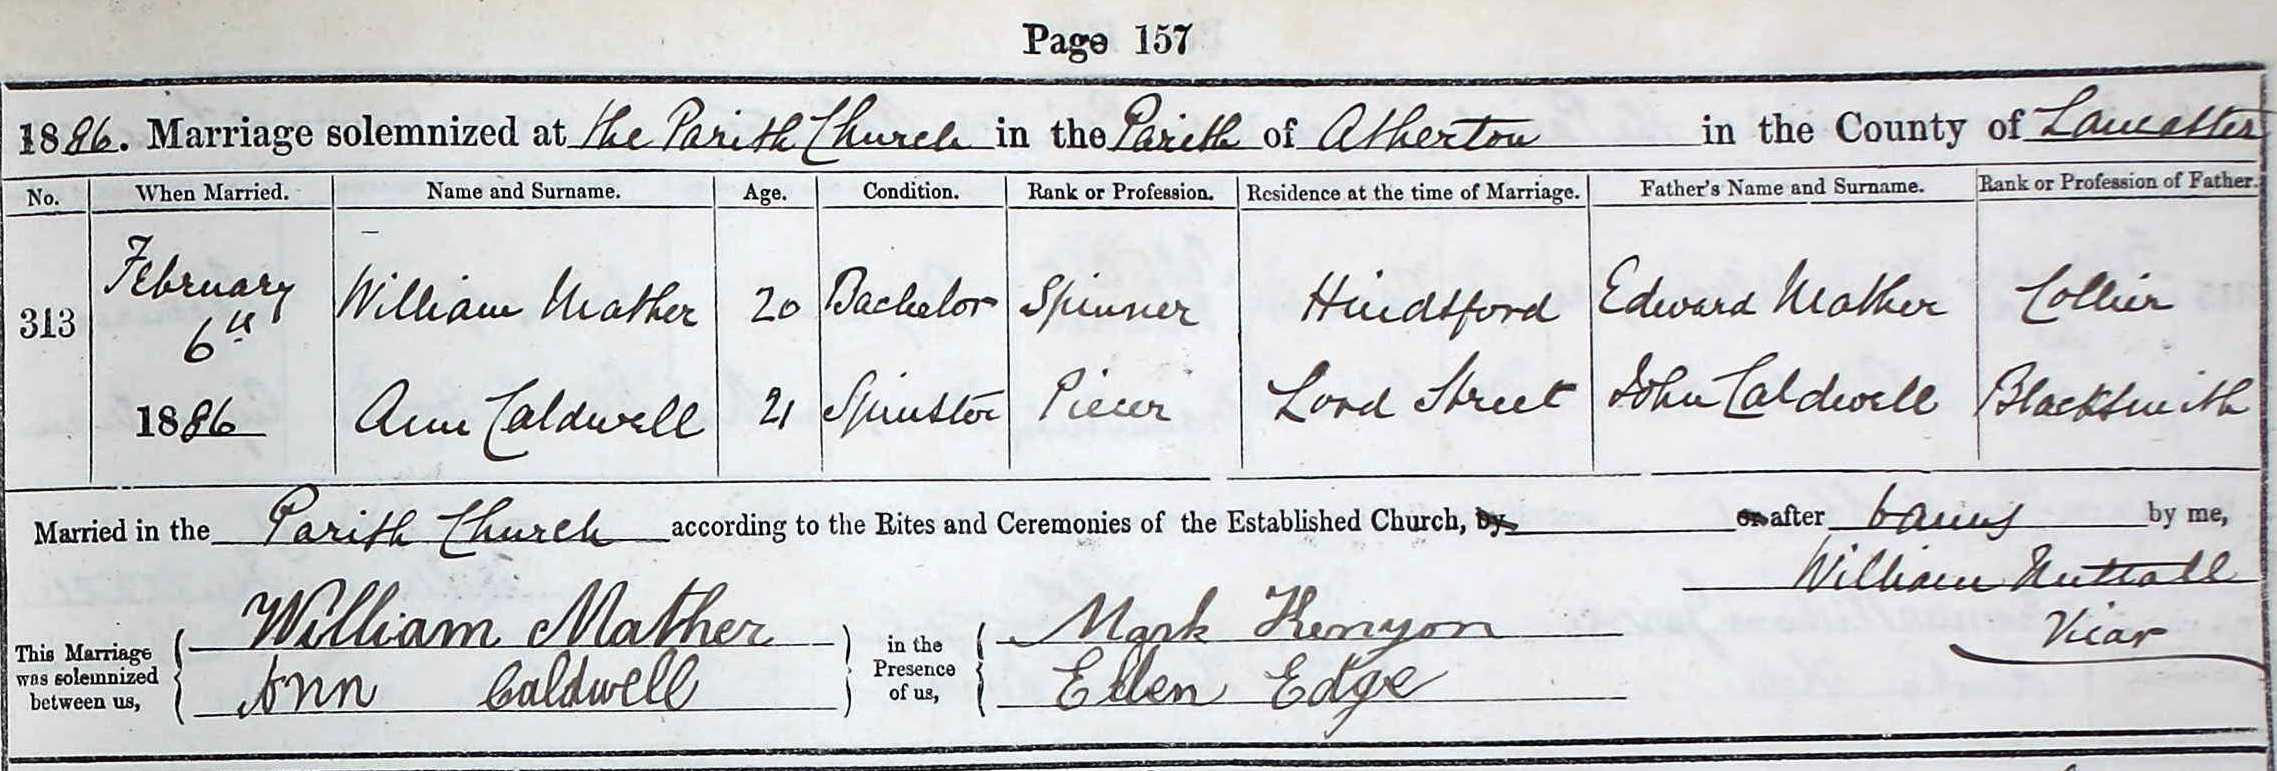 Page 157
1886. Marriage solemnized at the Parish Church in the Parish of Atherton in the County of Lancaster
No. When Married. Name and Surname. Age. Condition. Rank or Profession. Residence at the time of Marriage. Father's Name and Surname. Rank or Profession of Father.
313 February 6th William Mather 20 Bachelor Spinner Hindsford Edward Mather Collier
1886 Ann Caldwell 21 Spinster Piecer Lord Street John Caldwell Blacksmith
Married in the Parish Church according to the Rites and Ceremonies of the Established Church, by or after banns by me,
William Nuttall
Vicar
This Marriage was solemnized between us, William Mather in the Presence of us, Mark Kenyon
Ann Caldwell Ellen Edge